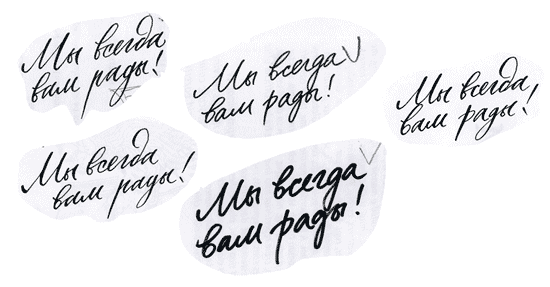 Мы всегда
вам рады!
Мы всегда
вам рады!
Мы всегда
вам рады!
Мы всегда
вам рады!
Мы всегда
вам рады!